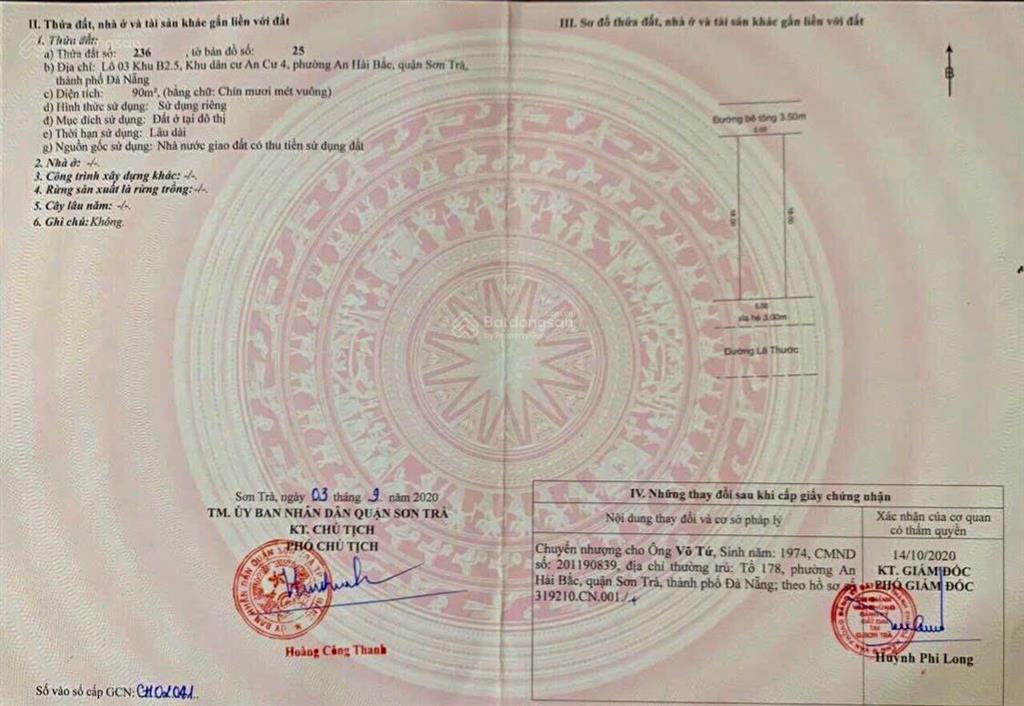 II. Thửa đất, nhà ở và tài sản khác gắn liền với đất
1. Thửa đất:
a) Thửa đất số: 236 , tờ bản đồ số: 25
b) Địa chỉ: Lô 03 Khu B2.5, Khu dân cư An Cư 4, phường An Hải Bắc, quận Sơn Trà,
thành phố Đà Nẵng
c) Diện tích: 90m², (bằng chữ: Chín mươi mét vuông)
d) Hình thức sử dụng: Sử dụng riêng
đ) Mục đích sử dụng: Đất ở tại đô thị
e) Thời hạn sử dụng: Lâu dài
g) Nguồn gốc sử dụng: Nhà nước giao đất có thu tiền sử dụng đất
2. Nhà ở: -/-.
3. Công trình xây dựng khác: -/-.
4. Rừng sản xuất là rừng trồng:-/-.
5. Cây lâu năm: -/-.
6. Ghi chú: Không.
Sơn Trà, ngày 03 tháng 9 năm 2020
TM. ỦY BAN NHÂN DÂN QUẬN SƠN TRÀ
KT. CHỦ TỊCH
PHÓ CHỦ TỊCH
Hoàng Công Thanh
Số vào sổ cấp GCN: CH02041..
III. Sơ đồ thửa đất, nhà ở và tài sản khác gắn liền với đất
B
Đường bê tông 3.50m
5.00
18.00
18.00
5.00
vỉa hè 3.00m
Đường Lê Thước
Batdongsan
IV. Những thay đổi sau khi cấp giấy chứng nhận
Nội dung thay đổi và cơ sở pháp lý
Xác nhận của cơ quan
có thẩm quyền
Chuyển nhượng cho Ông Võ Tứ, Sinh năm: 1974, CMND
số: 201190839, địa chỉ thường trú: Tổ 178, phường An
Hải Bắc, quận Sơn Trà, thành phố Đà Nẵng; theo hồ sơ số
319210.CN.001./.
14/10/2020
KT. GIÁM ĐỐC
PHÓ GIÁM ĐỐC
Huỳnh Phi Long